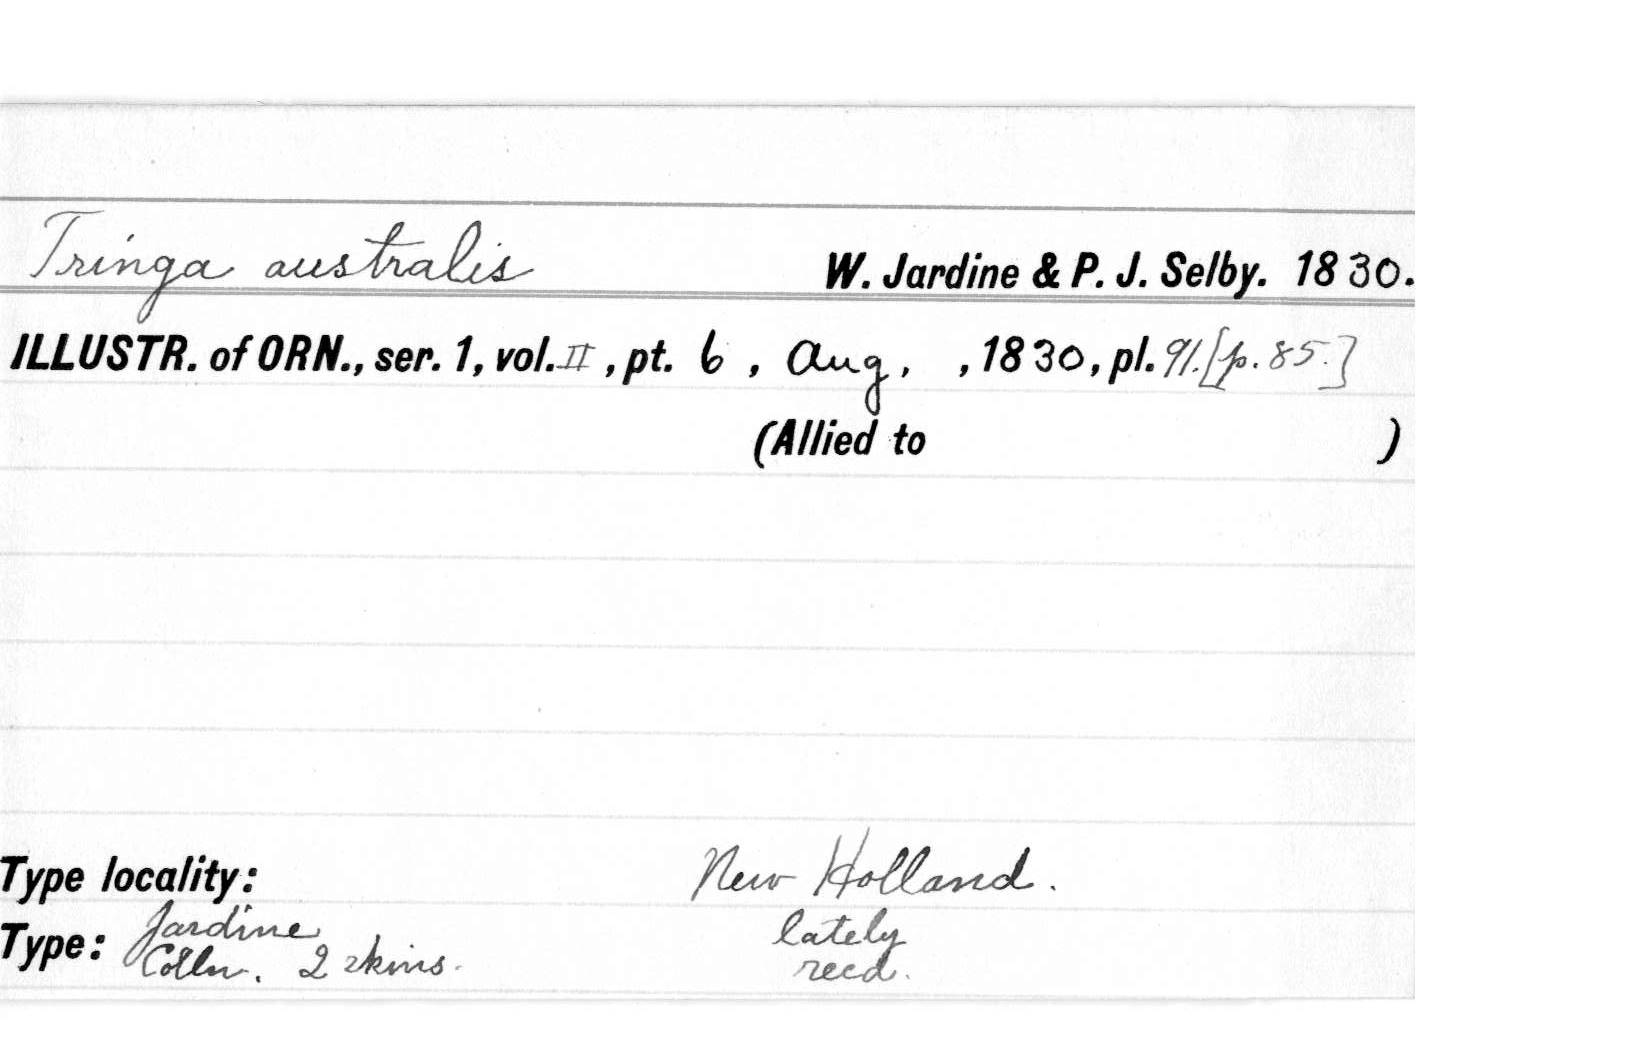 Tringa australis W. Jardine & P. J. Selby. 1830.
ILLUSTR. of ORN., ser. 1, vol. II, pt. 6, Aug, , 1830, pl. 91. [p. 85.]
(Allied to )
Type locality: New Holland.
Type: Jardine Colln. 2 skins. lately recd.